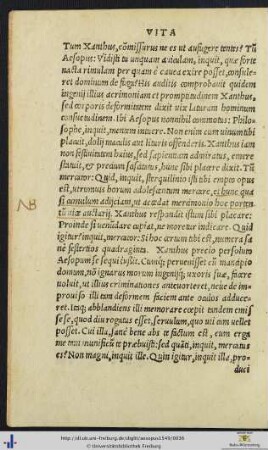 VITA
Tum Xanthus, cōmissurus ne es ut aufugere tentes? Tū
Aesopus: Vidisti tu unquam auiculam, inquit, que forte
nacta rimulam per quam é cauea exire posset, consule-
ret dominum de fuga? His auditis comprobauit quidem
ingenij illius acrimoniam et promptitudinem Xanthus,
sed corporis deformitatem dixit uix laturam hominum
consuetudinem. Ibi Aesopus nonnihil commotus: Philo-
sophe, inquit, mentem intuere. Non enim cum uinum tibi
placuit, dolij maculis aut lituris offenderis. Xanthus iam
non festiuitatem huius, sed sapientiam admiratus, emere
statuit, et precium sciscitatus, hunc sibi placere dixit. Tū
mercator: Quid, inquit, sterquilinio isti tibi empto opus
est, utrouuis horum adolescentum mercare, et hunc qua
si cumulum adijciam, ut accedat mercimonio hoc porten-
tū uice auctarij. Xanthus respondit istum sibi placere:
Proinde si uendere cupiat, ne moretur indicare. Quid
igitur? inquit, mercator: Si hoc certum tibi est, numera sa
nè sestertios quadraginta. Xanthus precio persoluto
Aesopum se sequi iussit. Cumq; peruenisset in aspectū
domum, nō ignarus morum ingenijq; uxoris suæ, præue
uoluit, ut illius criminationes anteuorteret, neue de im-
prouiso illi tam deformem faciem ante oculos adduce-
ret. Itaq; abblandiens illi memorare cœpit tandem emis
se se, quod diu rogatus esset, seruulum, quo uti iam uellet
posset. Cui illa, sanè bene abs te factum est, cum erga
me mui munificū te præbuisti: sed quāti, inquit, mercatus
es? Non magni, inquit ille. Quin igitur, inquit illa, pro-
duci
NB
http://digi.ub.uni-freiburg.de/diglit/aesopus1549/0036
© Universitätsbibliothek Freiburg
Baden-Württemberg